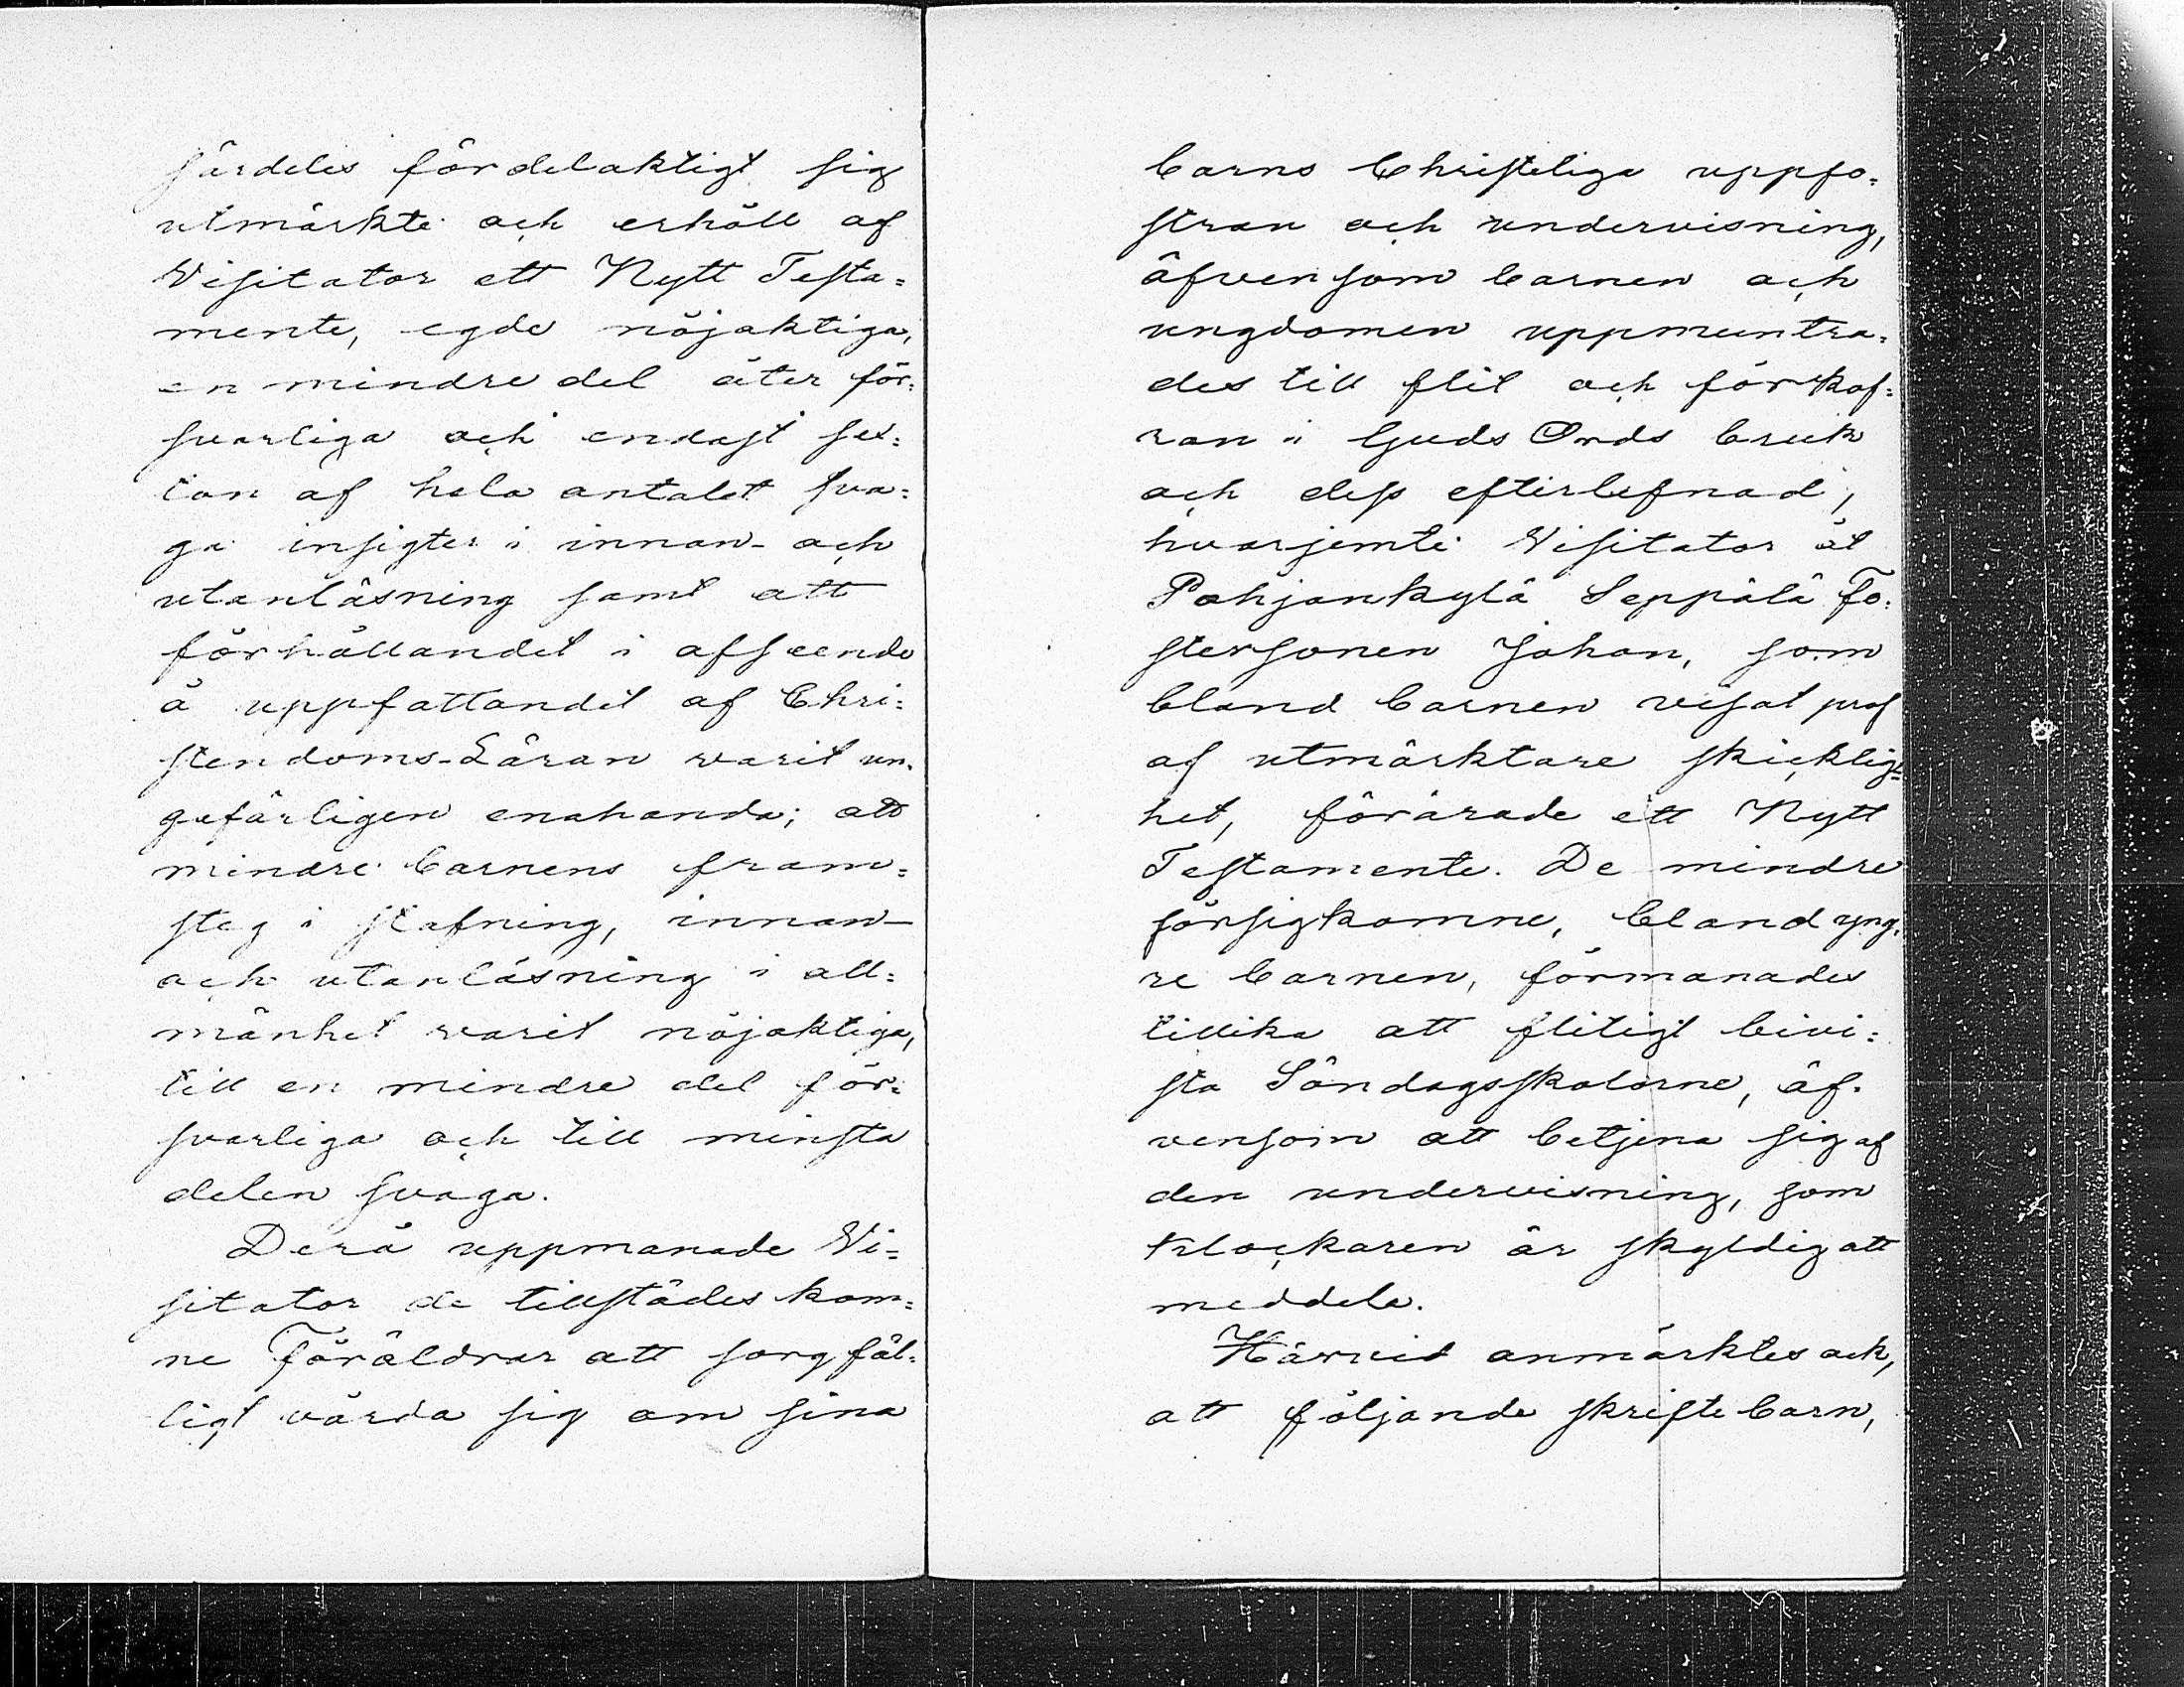 särdeles fördelaktigt sig
utmärkte och erhöll af
Visitator ett Nytt Testa=
mente, egde nöjaktiga,
en mindre del åter för=
svarliga och endast sex=
ton af hela antalet sva=
ga insigter i innan- och
utanläsning samt att
förhållandet i afseende
å uppfattandet af Chri=
stendoms-Läran varit un=
gefärligen enahanda; att
mindre barnens fram=
steg i stafning, innan-
och utanläsning i all=
mänhet varit nöjaktiga,
till en mindre del för=
svarliga och till minsta
delen svaga.
Derå uppmanade Vi=
sitator de tillstädeskom=
ne Föräldrar att sorgfäl=
ligt vårda sig om sina
barns Christeliga uppfo=
stran och undervisning,
äfvensom barnen och
ungdomen uppmuntra=
des till flit och förkof=
ran i Guds Ords bruk
och dess efterlefnad,
hvarjemte Visitator åt
Pohjankylä Seppälä Fo=
stersonen Johan, som
bland barnen visat prof
af utmärktare skicklig=
het, förärade ett Nytt
Testamente. De mindre
försigkomne, bland yng=
re barnen, förmanades
tillika att flitigt bevi=
sta Söndagsskolorne, äf=
vensom att betjena sig af
den undervisning, som
Klockaren är skyldig att
meddela.
Härvid anmärktes ock,
att följande skriftebarn,